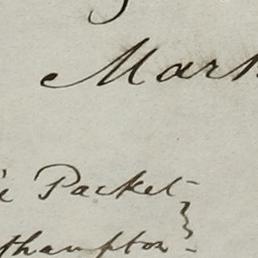 Mark
e Packet
thampton